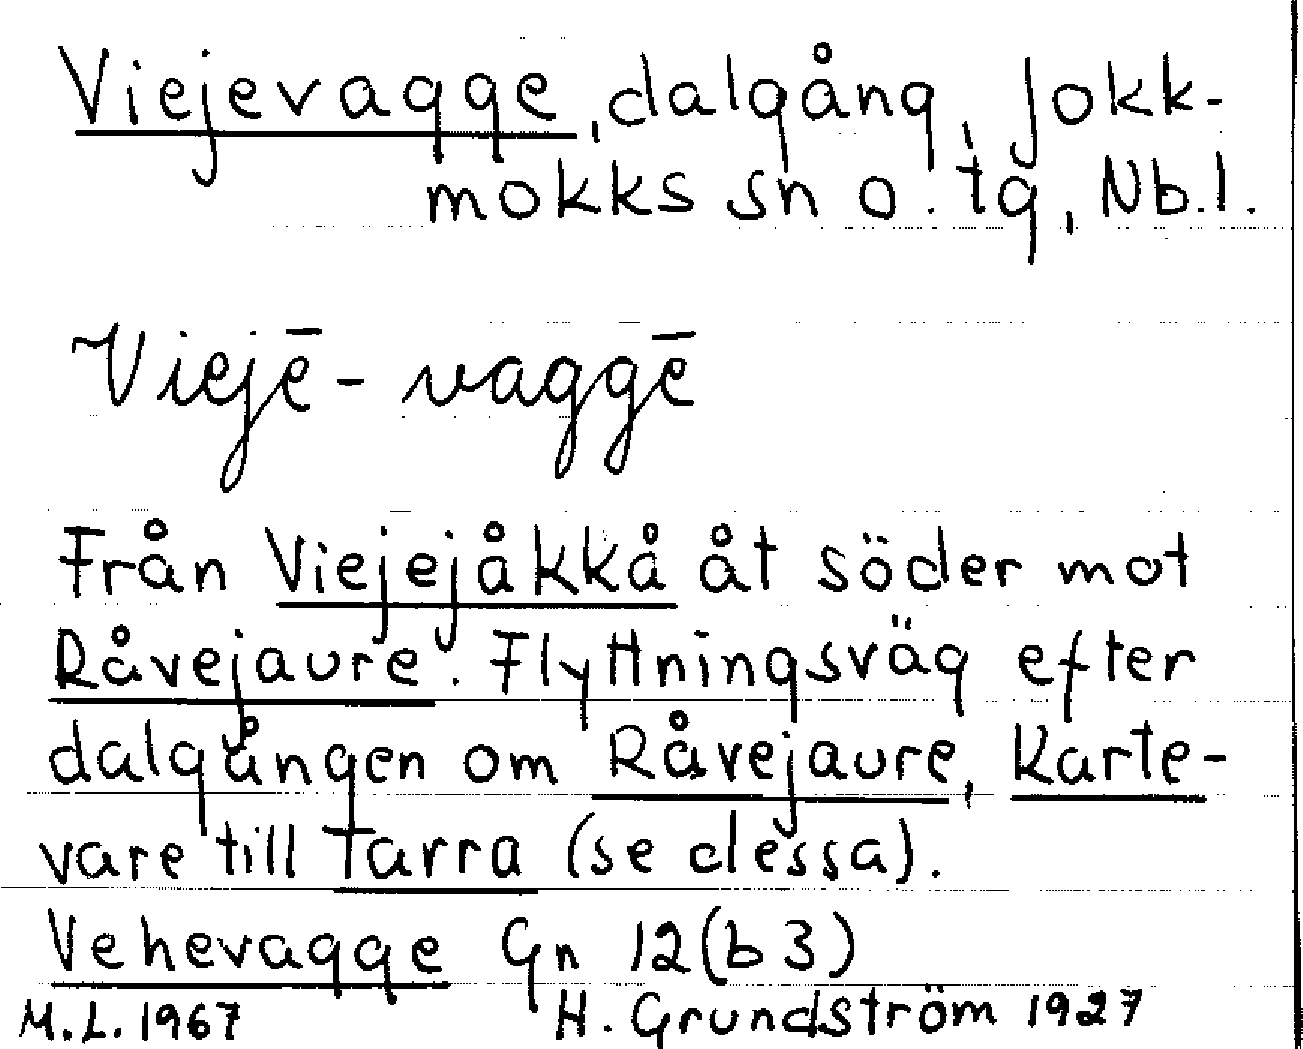 Viejevagge, dalgång, Jokk-
mokks sn o. tg, Nb.l.
Viejē-vaggē
Från Viejejåkkå åt söder mot
Råvejaure. Flyttningsväg efter
dalgången om Råvejaure, Karte-
vare till Tarra (se dessa).
Vehevagge Gn 12(b3)
M.L. 1967 H. Grundström 1927